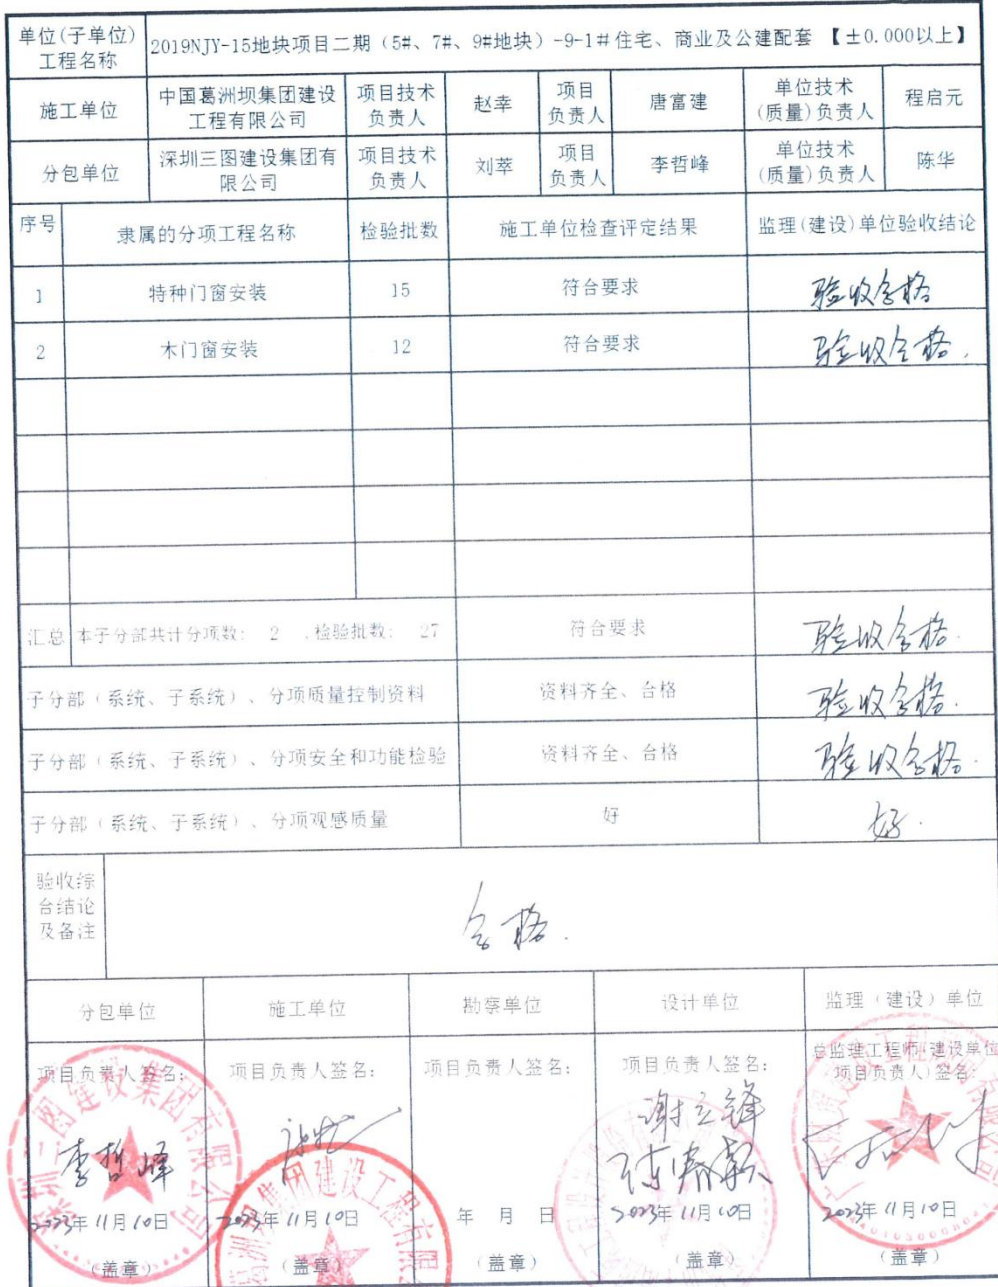 单位(子单位)
工程名称
2019NJY-15地块项目二期（5#、7#、9#地块）-9-1#住宅、商业及公建配套 【±0.000以上】
施工单位
中国葛洲坝集团建设
工程有限公司
项目技术
负责人
赵幸
项目
负责人
唐富建
单位技术
(质量)负责人
程启元
分包单位
深圳三图建设集团有
限公司
项目技术
负责人
刘萃
项目
负责人
李哲峰
单位技术
(质量)负责人
陈华
序号
隶属的分项工程名称
检验批数
施工单位检查评定结果
监理(建设)单位验收结论
1
特种门窗安装
15
符合要求
验收合格
2
木门窗安装
12
符合要求
验收合格.
汇总
本子分部共计分项数： 2 ,检验批数： 27
符合要求
验收合格.
子分部（系统、子系统）、分项质量控制资料
资料齐全、合格
验收合格.
子分部（系统、子系统）、分项安全和功能检验
资料齐全、合格
验收合格.
子分部（系统、子系统）、分项观感质量
好
好.
验收综
合结论
及备注
合格.
分包单位
施工单位
勘察单位
设计单位
监理（建设）单位
项目负责人签名：
项目负责人签名：
项目负责人签名：
项目负责人签名：
总监理工程师(建设单位
项目负责人)签名：
李哲峰
谢立锋
2023年11月10日
2023年11月10日
年 月 日
2023年11月10日
2023年11月10日
（盖章）
（盖章）
（盖章）
（盖章）
（盖章）
深圳三图建设集团有限公司